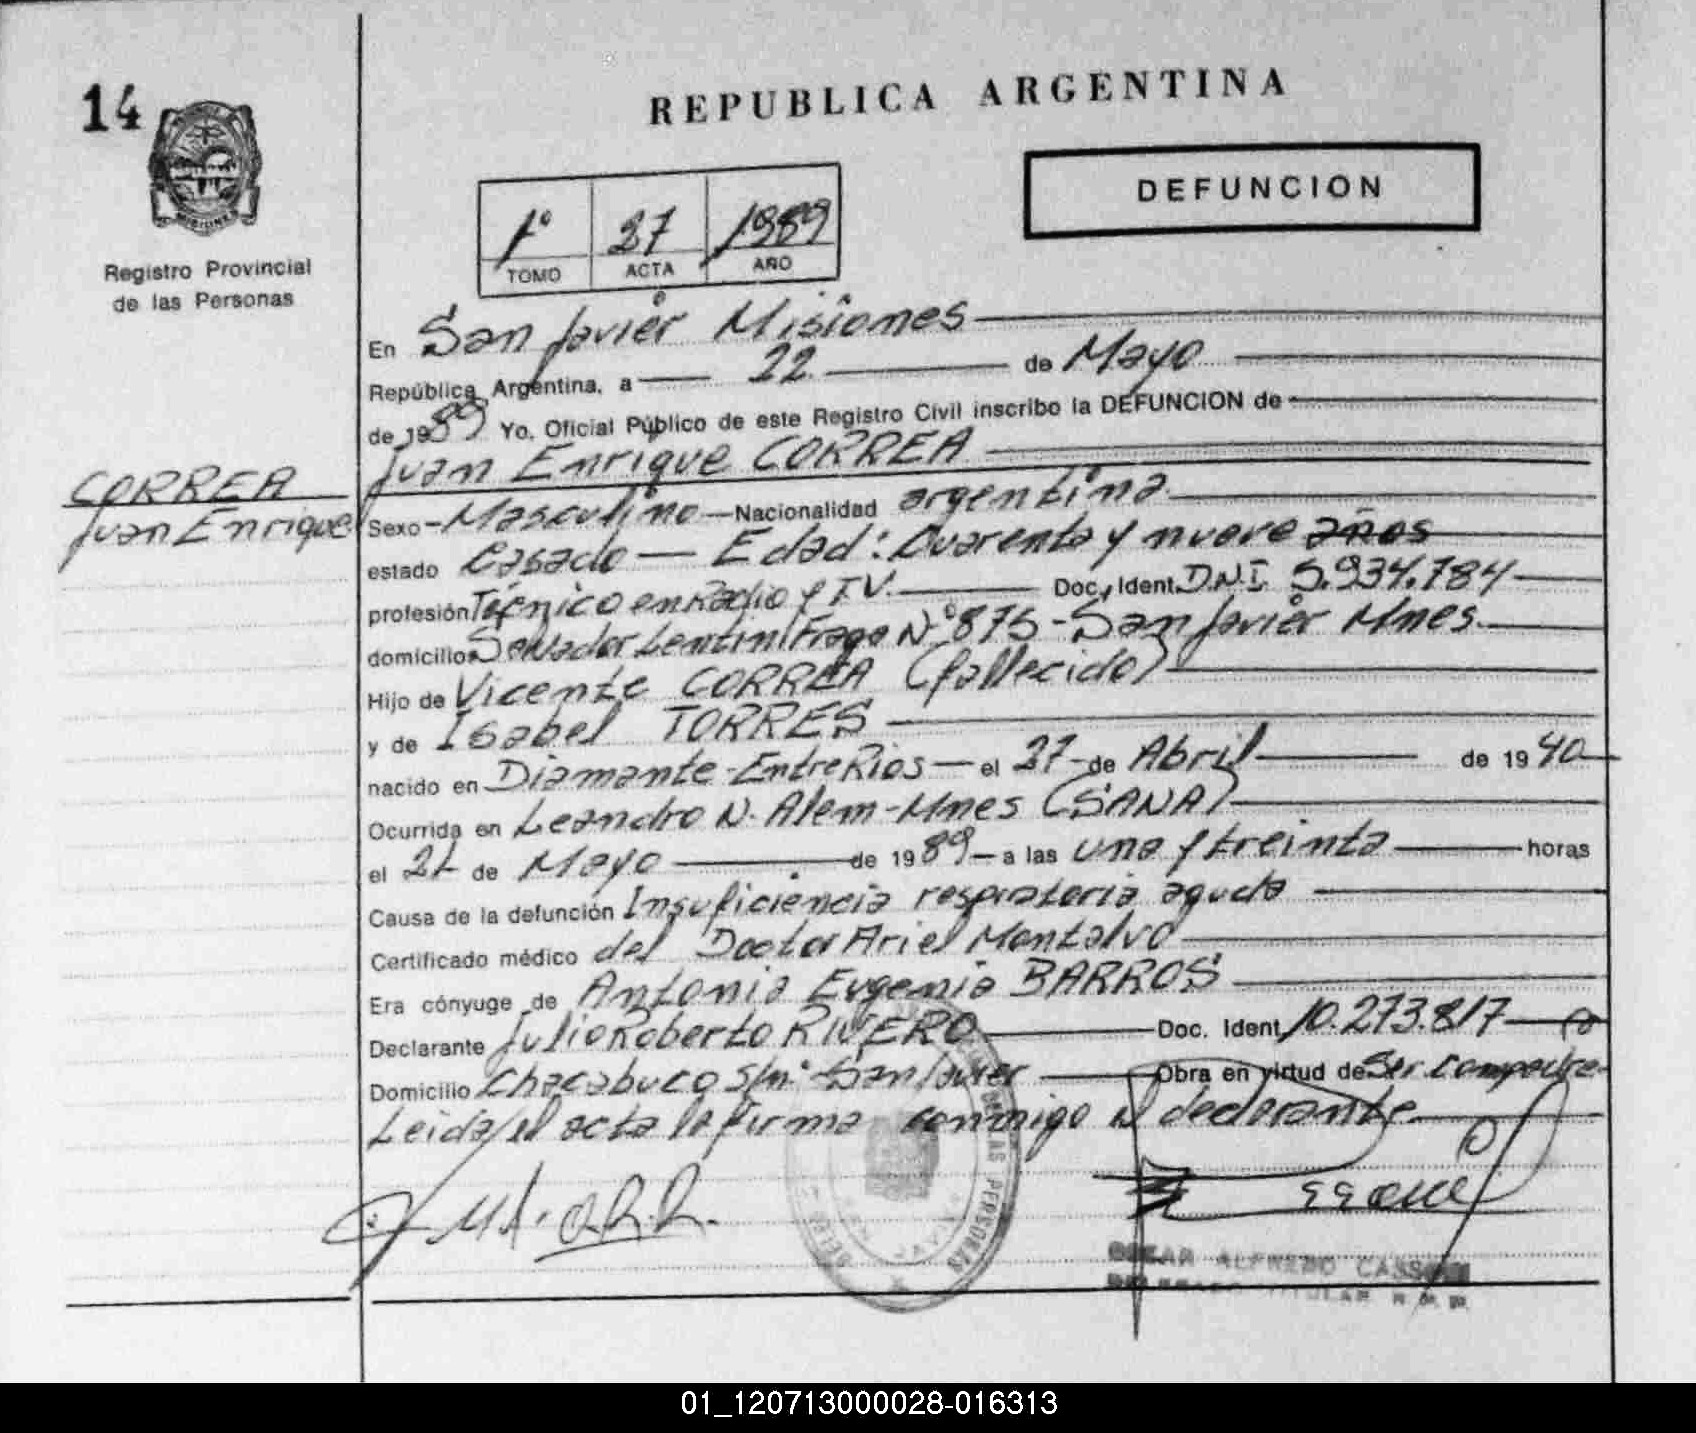 14
REPUBLICA ARGENTINA
DEFUNCION
1º 27 1989
TOMO ACTA AÑO
Registro Provincial
de las Personas
En San Javier Misiones
República Argentina, a 22 de Mayo
de 1989 Yo, Oficial Público de este Registro Civil inscribo la DEFUNCION de
Juan Enrique CORREA
CORREA
Juan Enrique
Sexo - Masculino - Nacionalidad argentina
estado Casado - Edad: Cuarenta y nueve años
profesión Técnico en Radio y T.V. Doc. Ident. D.N.I. 5.934.784
domicilio Salvador Lentini Fraga Nº 875 - San Javier Mnes.
Hijo de Vicente CORREA (fallecido)
y de Isabel TORRES
nacido en Diamante - Entre Rios - el 27 - de Abril de 1940
Ocurrida en Leandro N. Alem - Mnes (SANA)
el 21 de Mayo de 1989 - a las una y treinta horas
Causa de la defunción Insuficiencia respiratoria aguda
Certificado médico del Doctor Ariel Montalvo
Era cónyuge de Antonia Eugenia BARROS
Declarante Julio Roberto RIVERO Doc. Ident. 10.273.817
Domicilio Chacabuco s/nº San Javier Obra en virtud de Ser compadre
Leida el acta la firma conmigo el declarante
DE LAS PERSONAS
OSCAR ALFREDO
TITULAR
01_120713000028-016313